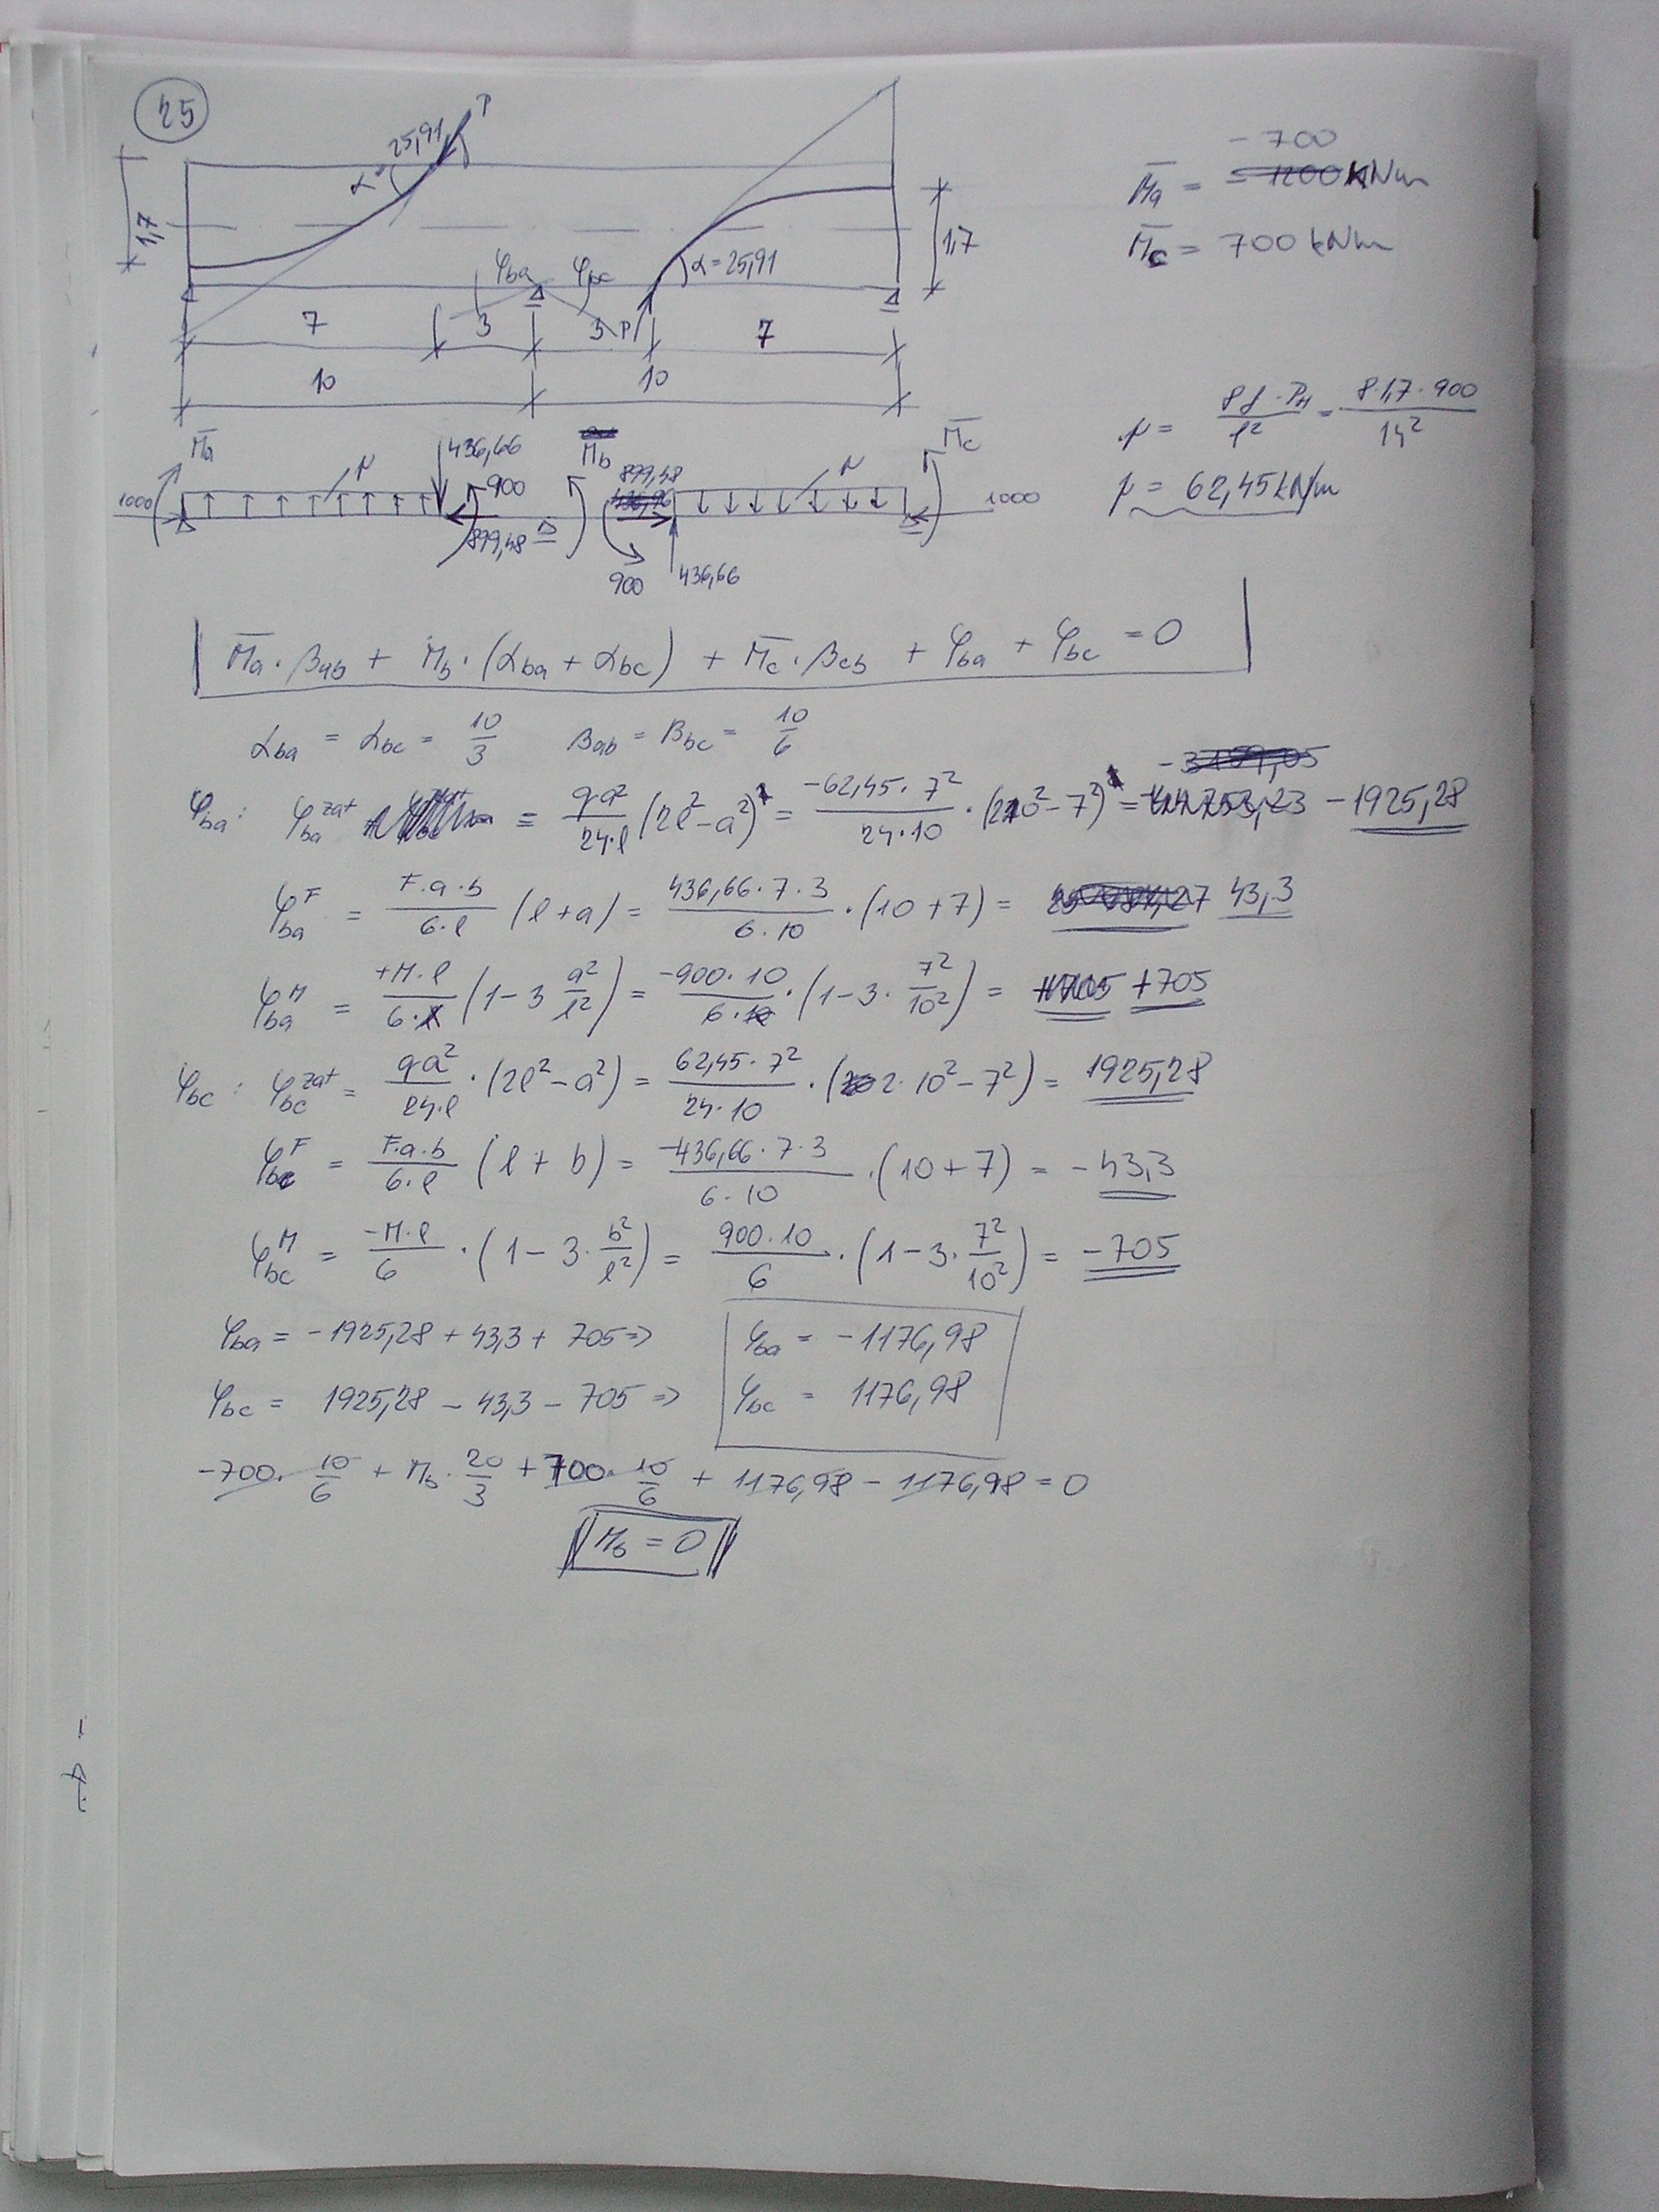 25
P
α = 25,91
1,7
φba φbc
α = 25,91
1,7
7 3 3 P 7
10 10
-700
M̄a = -1200 kNm
M̄c = 700 kNm
p = 8f · PH / l² = 8·1,7·900 / 14²
p = 62,45 kN/m
M̄a 436,66 M̄b M̄c
1000 p 900 899,48 436,96 p 1000
899,48 900 436,66
M̄a · βab + Mb · (αba + αbc) + M̄c · βcb + φba + φbc = 0
αba = αbc = 10/3 βab = βbc = 10/6
-3159,05
φba: φba^zat = qa²/24·l (2l² - a²) = -62,45 · 7² / 24·10 · (2·10² - 7²) = -1925,28
φba^F = F·a·b / 6·l (l + a) = 436,66 · 7 · 3 / 6·10 · (10 + 7) = 43,3
φba^M = +M·l / 6 (1 - 3 a²/l²) = -900 · 10 / 6 · (1 - 3 · 7²/10²) = +705 +705
φbc: φbc^zat = qa²/24·l · (2l² - a²) = 62,45 · 7² / 24·10 · (2·10² - 7²) = 1925,28
φbc^F = F·a·b / 6·l (l + b) = -436,66 · 7 · 3 / 6·10 · (10 + 7) = -43,3
φbc^M = -M·l / 6 · (1 - 3 · b²/l²) = 900 · 10 / 6 · (1 - 3 · 7²/10²) = -705
φba = -1925,28 + 43,3 + 705 => φba = -1176,98
φbc = 1925,28 - 43,3 - 705 => φbc = 1176,98
-700 · 10/6 + Mb · 20/3 + 700 · 10/6 + 1176,98 - 1176,98 = 0
Mb = 0